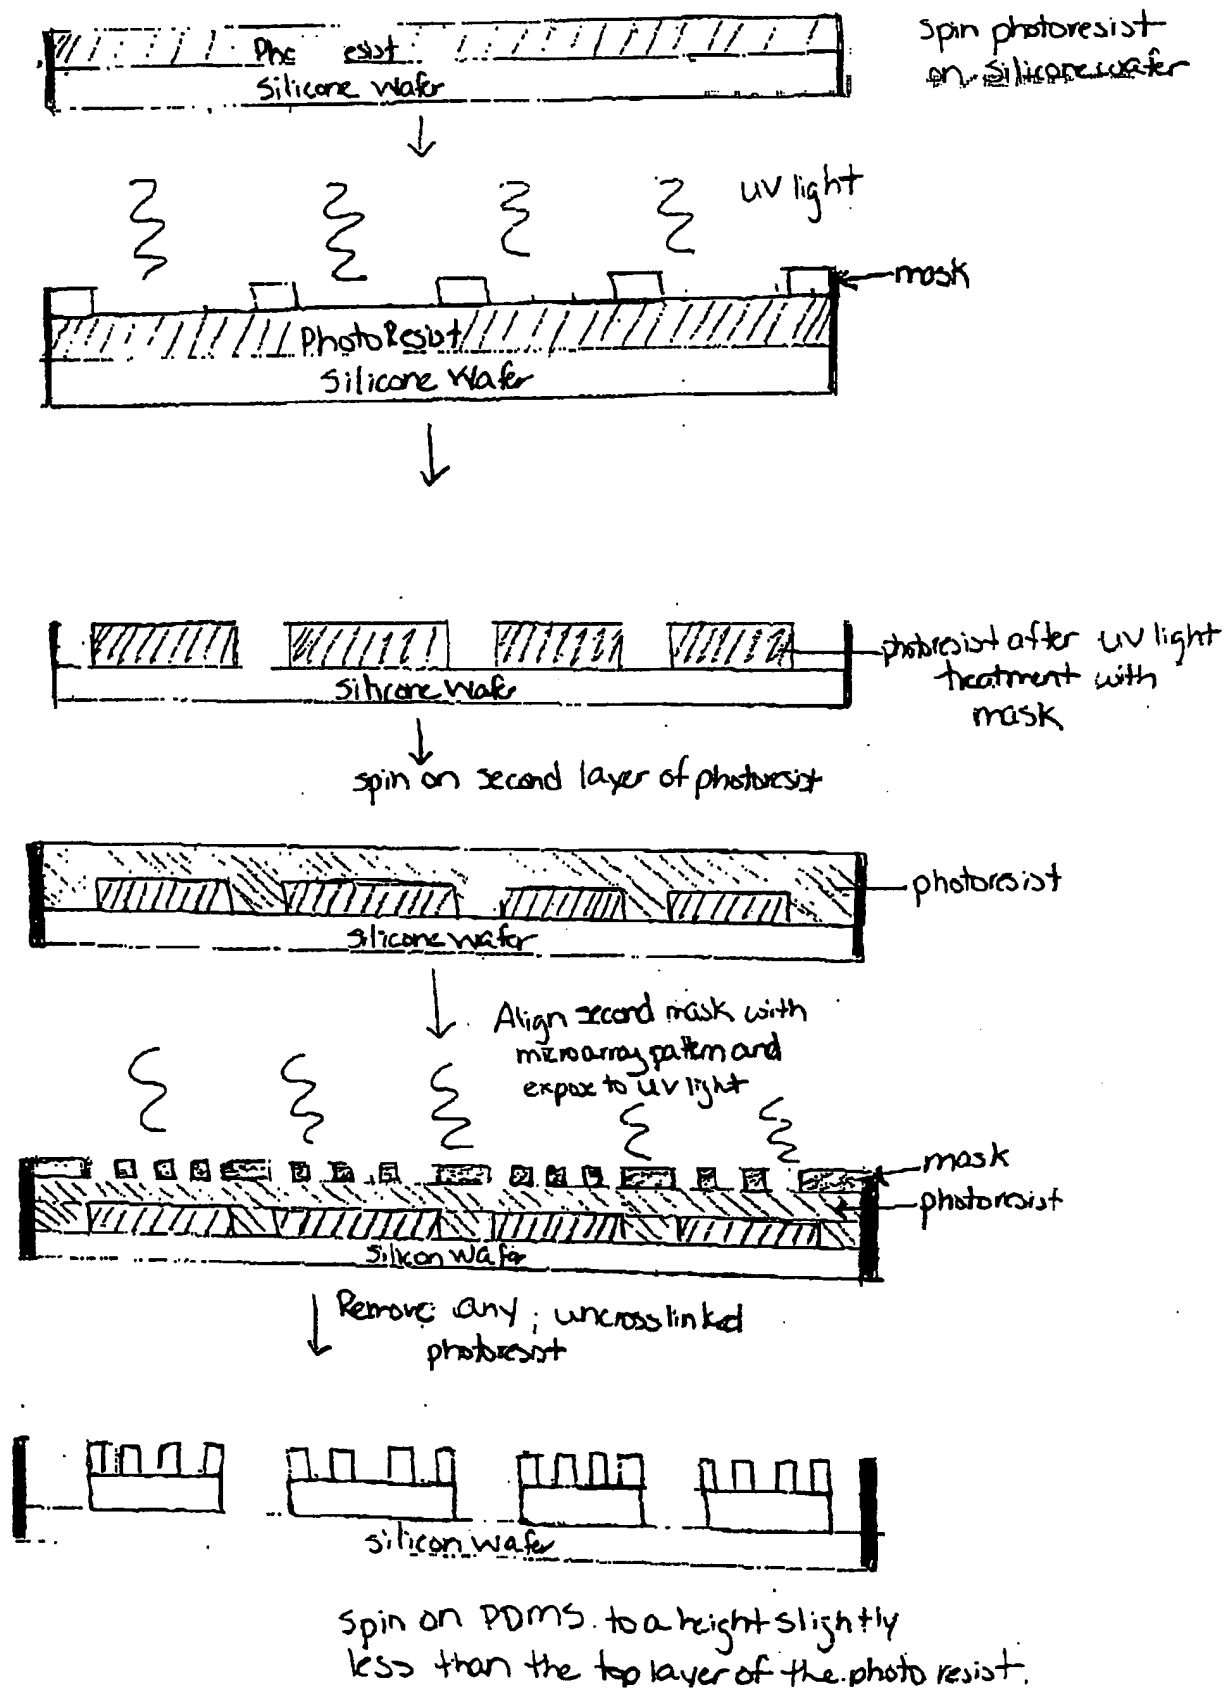 spin photoresist
on silicone wafer
Pho esist
Silicone Wafer
UV light
mask
PhotoResist
Silicone Wafer
photoresist after UV light
treatment with
mask
Silicone Wafer
spin on second layer of photoresist
photoresist
silicone wafer
Align second mask with
microarray pattern and
expose to UV light
mask
photoresist
Silicon Wafer
Remove any uncrosslinked
photoresist
silicon wafer
spin on PDMS to a height slightly
less than the top layer of the photo resist.